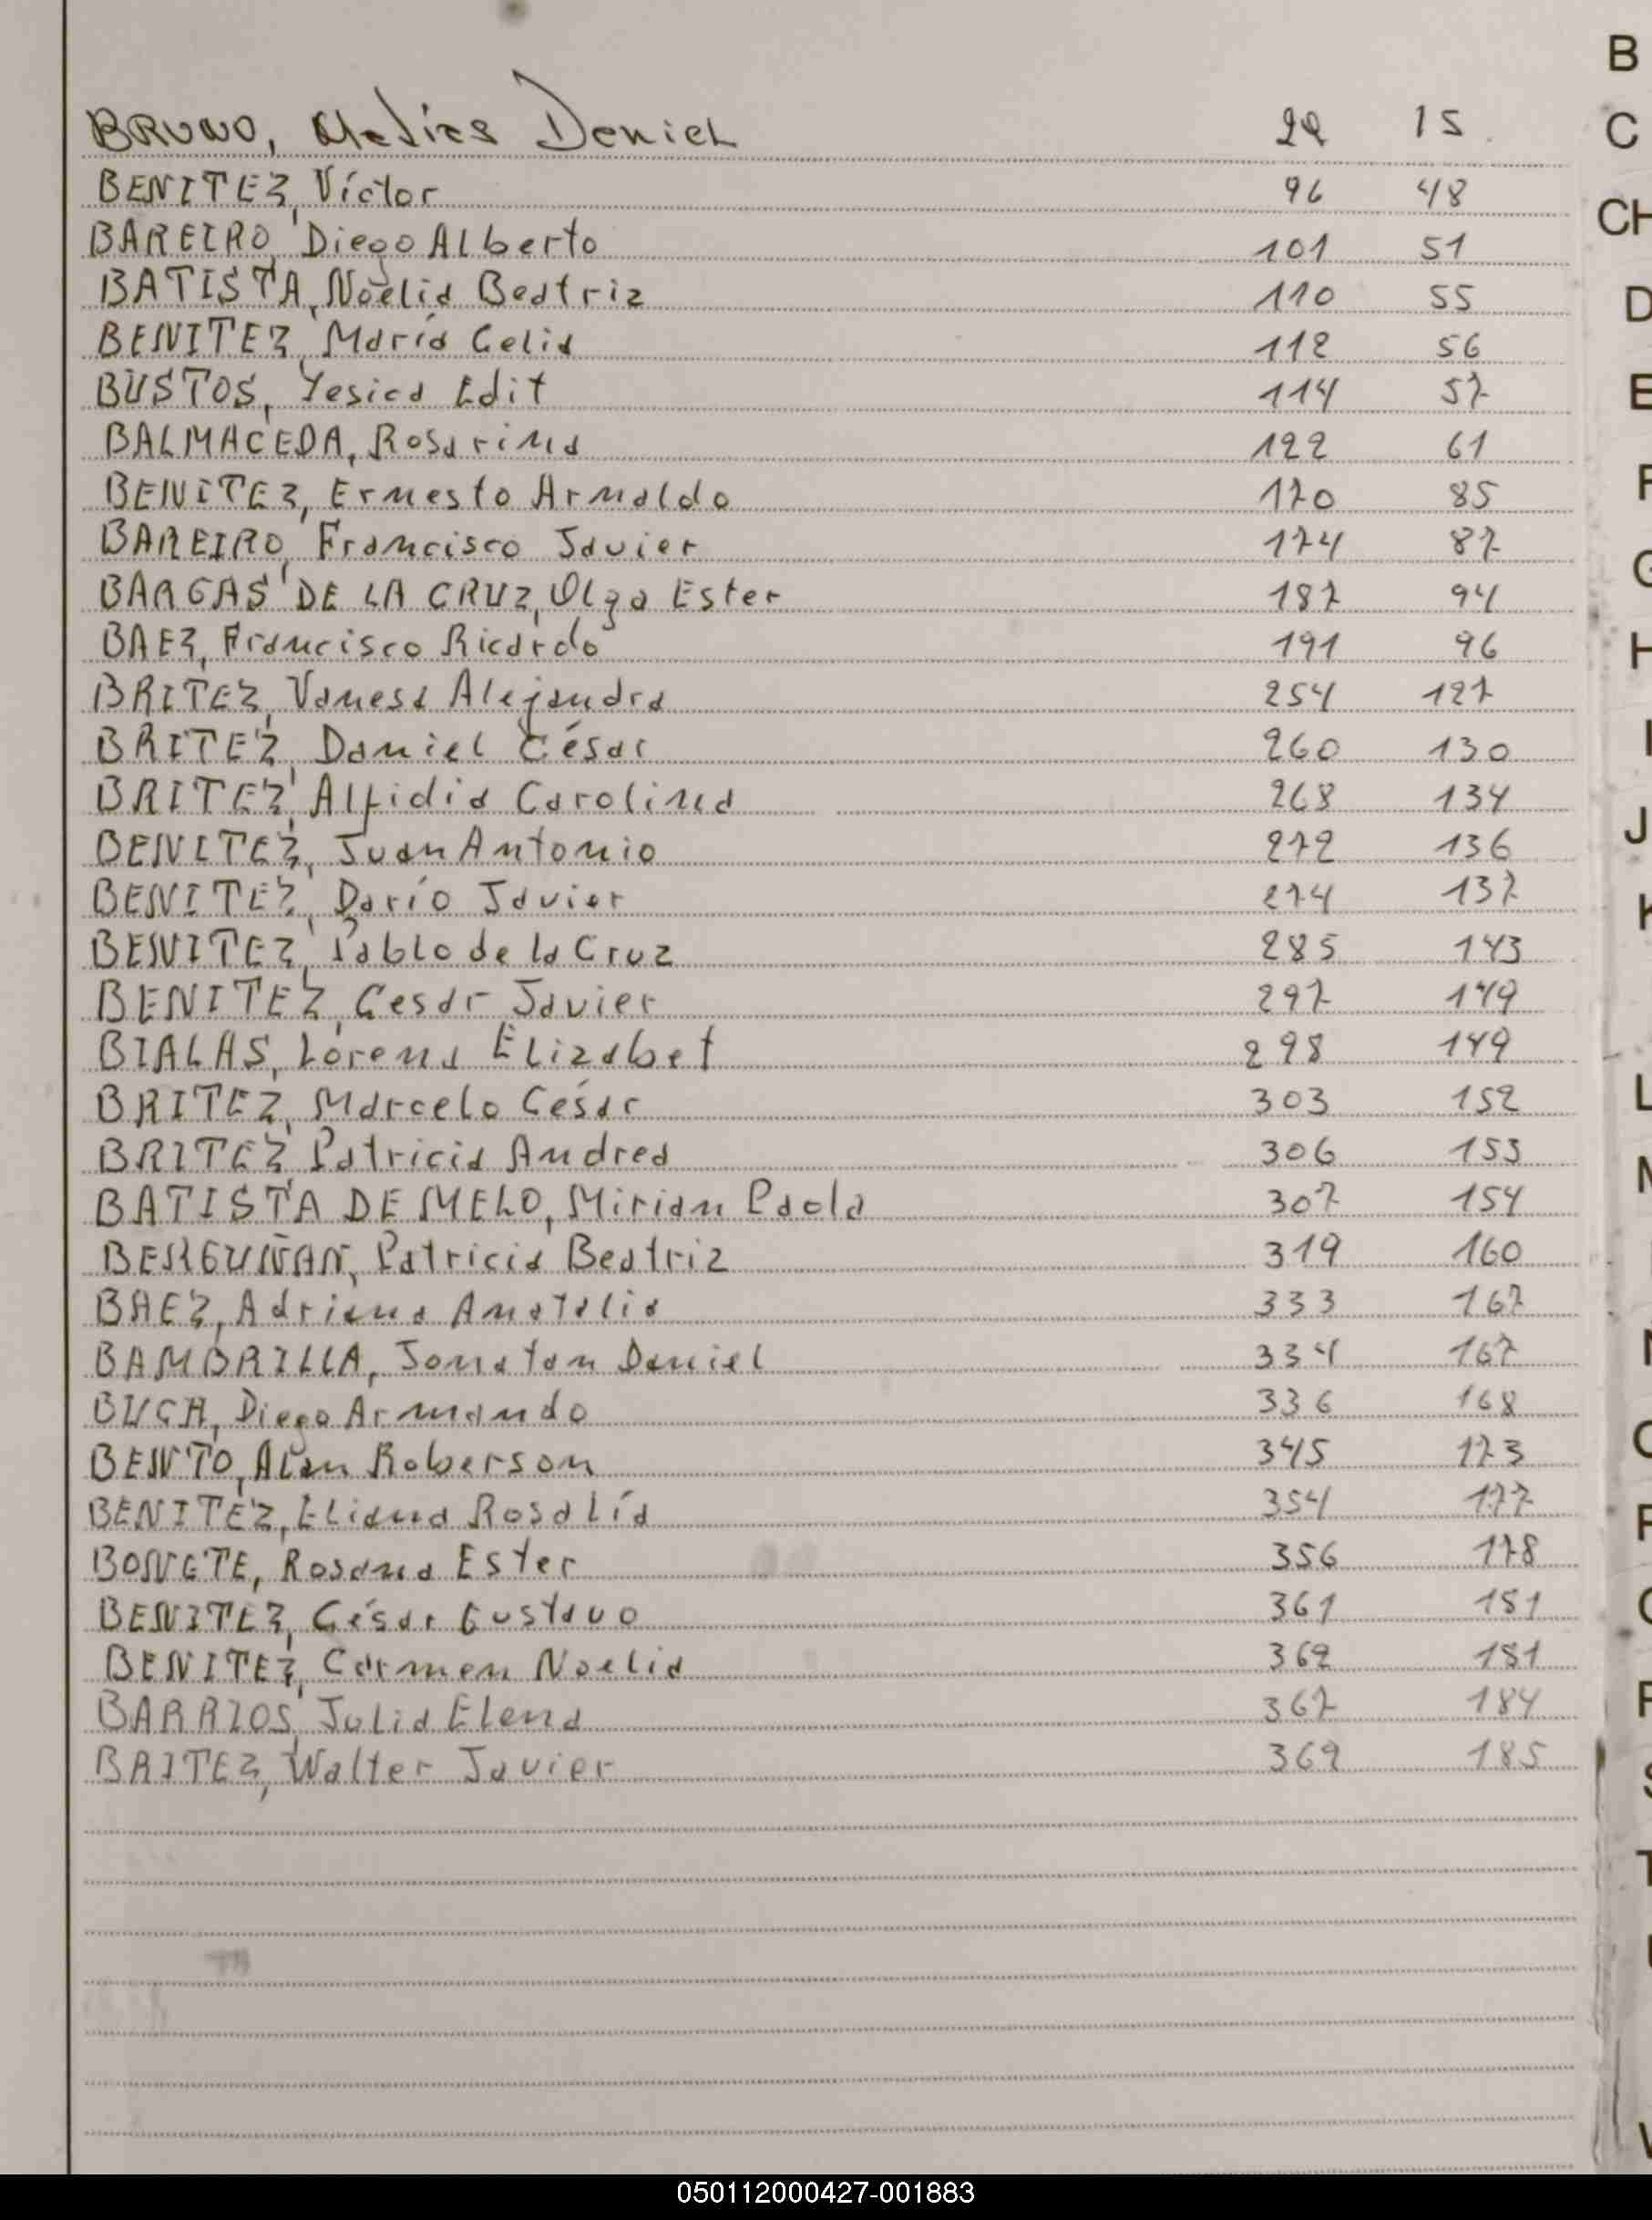 BRUNO, Matías Daniel 29 15
BENITEZ, Víctor 96 48
BAREIRO, Diego Alberto 101 51
BATISTA, Noelia Beatriz 110 55
BENITEZ, María Celia 112 56
BUSTOS, Yesica Edit 114 57
BALMACEDA, Rosarina 122 61
BENITEZ, Ernesto Arnaldo 170 85
BAREIRO, Francisco Javier 174 87
BARGAS DE LA CRUZ, Olga Ester 187 94
BAEZ, Francisco Ricardo 191 96
BRITEZ, Vanesa Alejandra 254 127
BRITEZ, Daniel César 260 130
BRITEZ, Alfidia Carolina 268 134
BENITEZ, Juan Antonio 272 136
BENITEZ, Darío Javier 274 137
BENITEZ, Pablo de la Cruz 285 143
BENITEZ, Cesar Javier 297 149
BIALAS, Lorena Elizabet 298 149
BRITEZ, Marcelo César 303 152
BRITEZ Patricia Andrea 306 153
BATISTA DE MELO, Mirian Paola 307 154
BERGUÑAN, Patricia Beatriz 319 160
BAEZ, Adriana Anatalia 333 167
BAMBRILLA, Jonatan Daniel 334 167
Diego Armando 336 168
BENTO, Alan Roberson 345 173
BENITEZ, Eliana Rosalía 354 177
BONETE, Rosana Ester 356 178
BENITEZ, César Gustavo 361 181
BENITEZ, Carmen Noelia 362 181
BARRIOS, Julia Elena 367 184
BRITEZ, Walter Javier 369 185
B
C
CH
D
E
F
G
H
I
J
K
L
M
N
O
P
Q
R
S
T
U
V
050112000427-001883